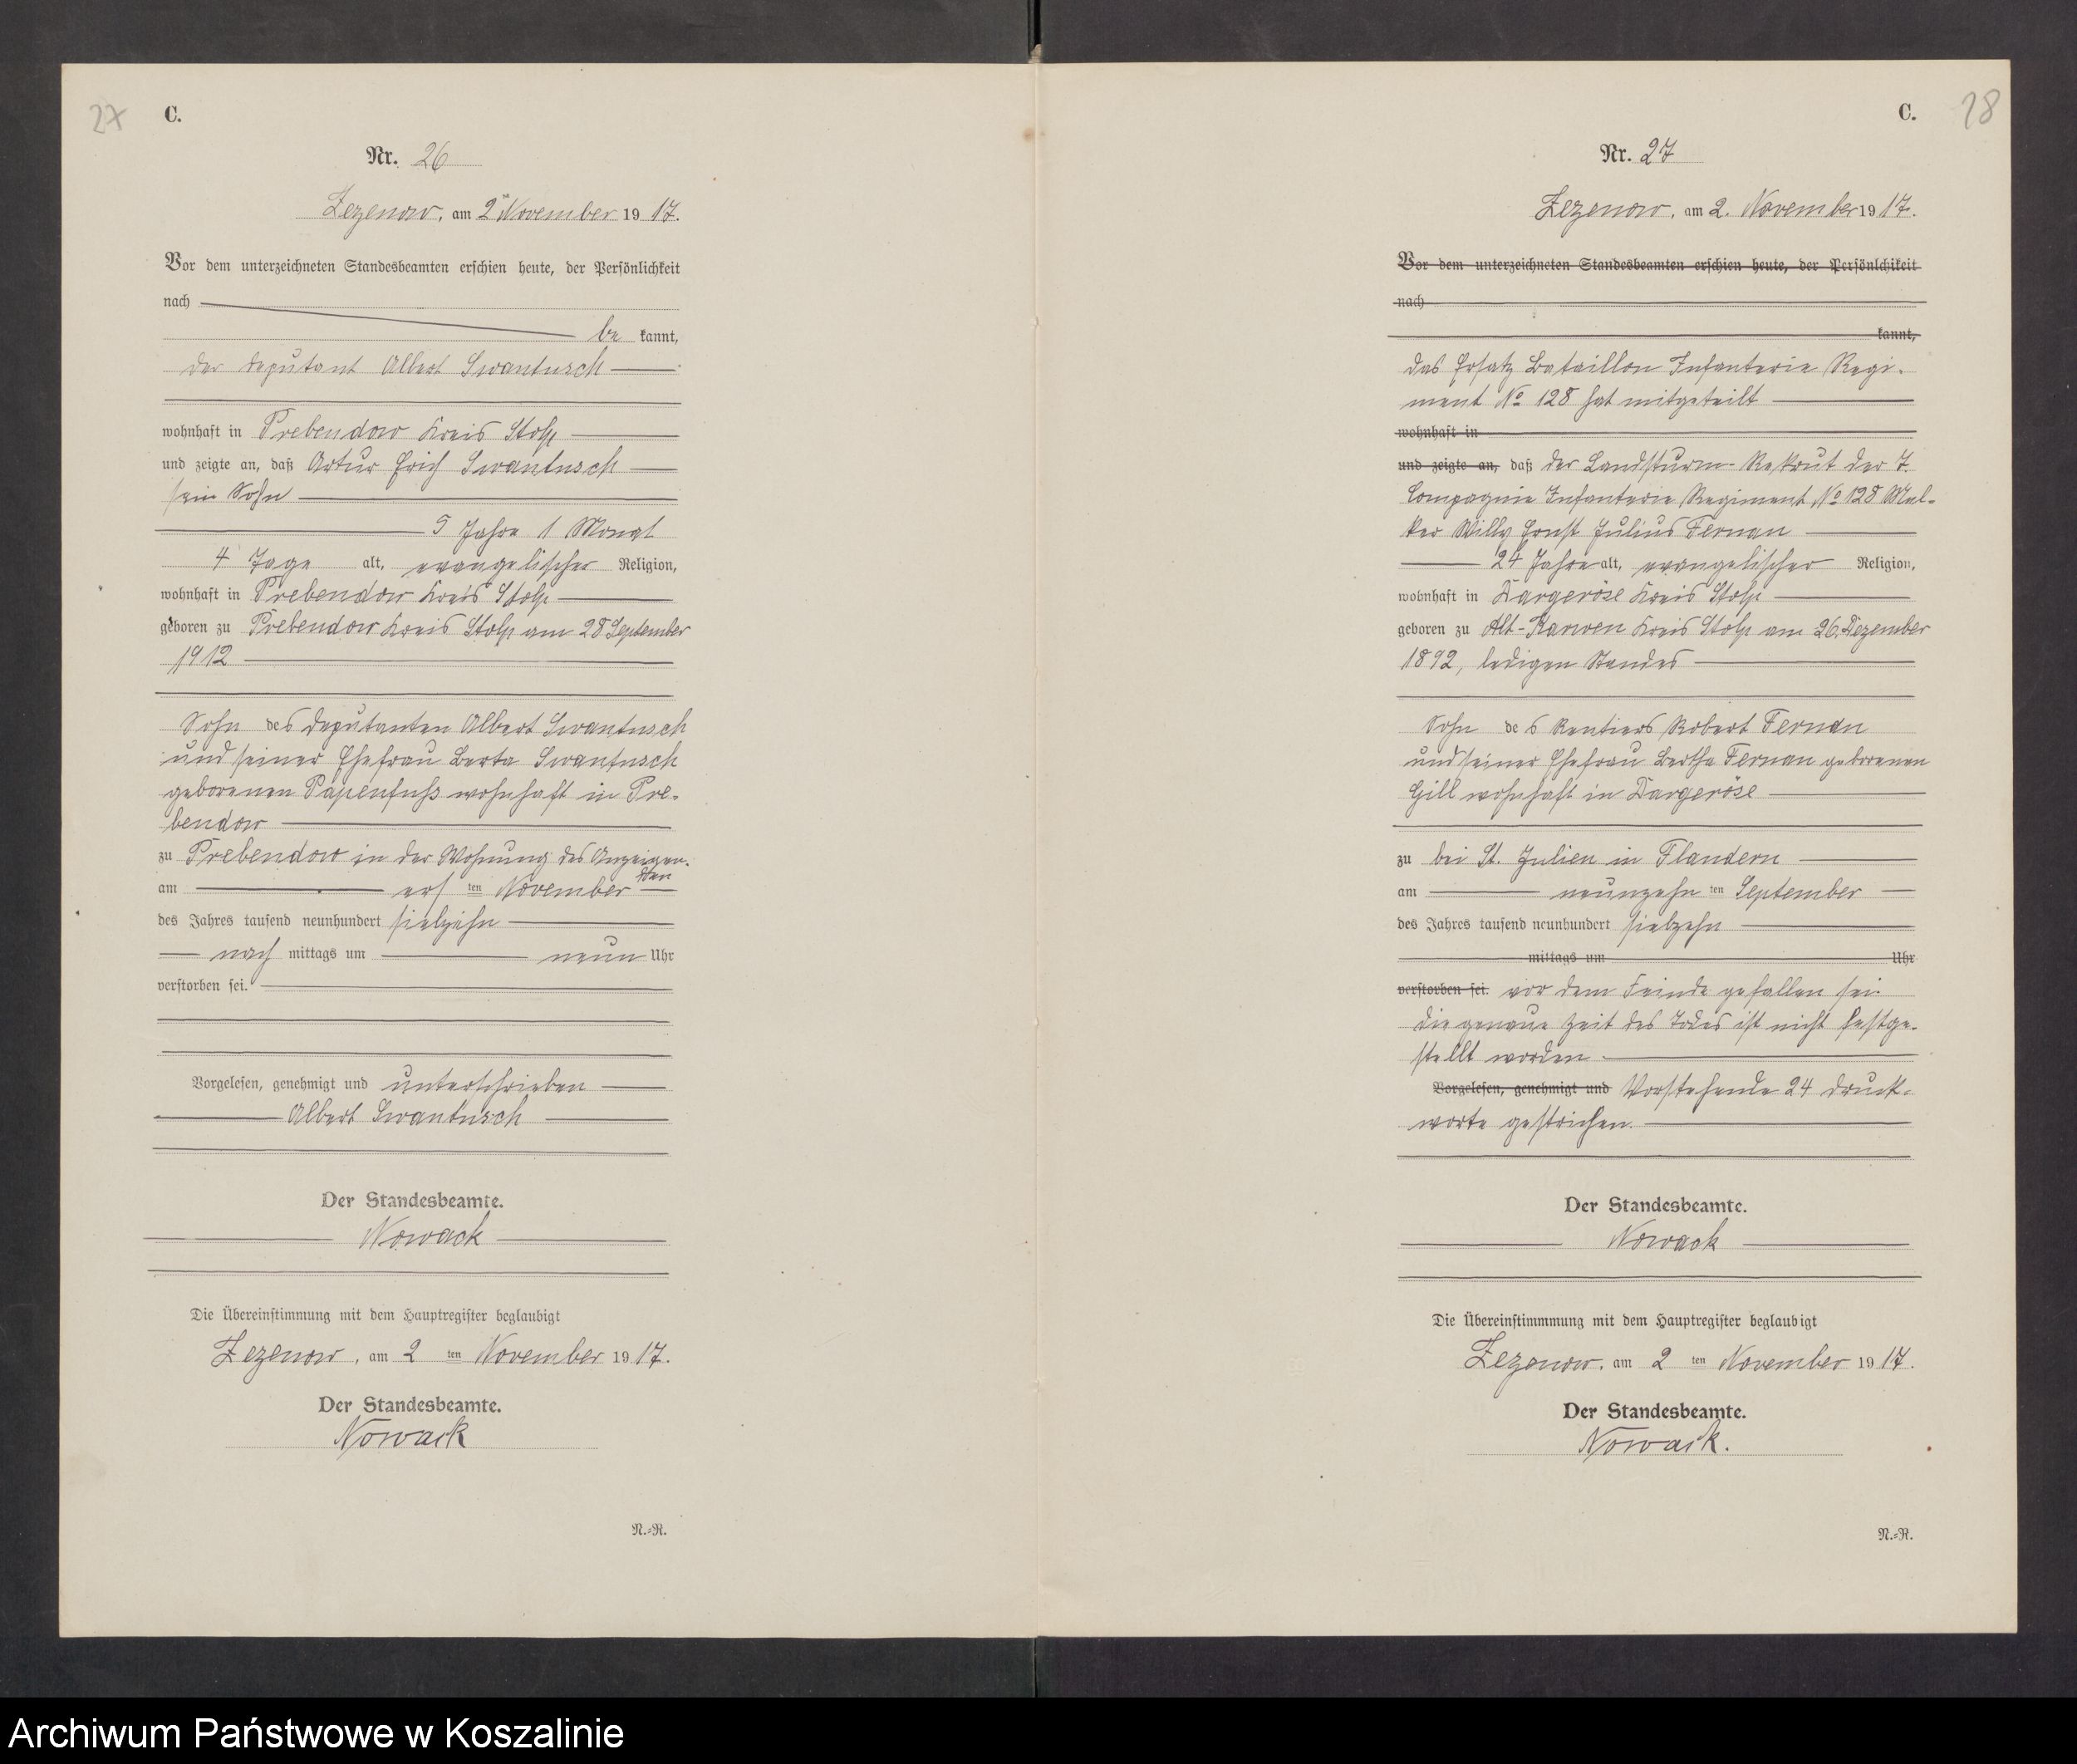 27
C.
Nr. 26
Zezenow, am 2 November 1917.
Vor dem unterzeichneten Standesbeamten erschien heute, der Persönlichkeit
nach
be kannt,
der Deputant Albert Swantusch
wohnhaft in Prebendow Kreis Stolp
und zeigte an, daß Artur Erich Swantusch
sein Sohn
5 Jahre 1 Monat
4 Tage alt, evangelischer Religion,
wohnhaft in Prebendow Kreis Stolp
geboren zu Prebendow Kreis Stolp am 28 September
1912
Sohn des Deputanten Albert Swantusch
und seiner Ehefrau Berta Swantusch
geborenen Papenfuß wohnhaft in Pre-
bendow
zu Prebendow in der Wohnung des Anzeigen-
den
am ersten November
des Jahres tausend neunhundert siebzehn
nach mittags um neun Uhr
verstorben sei.
Vorgelesen, genehmigt und unterschrieben
Albert Swantusch
Der Standesbeamte.
Nowack
Die Übereinstimmung mit dem Hauptregister beglaubigt
Zezenow, am 2 ten November 1917.
Der Standesbeamte.
Nowack
N.-R.
C.
28
Nr. 27
Zezenow, am 2. November 1917.
Vor dem unterzeichneten Standesbeamten erschien heute, der Persönlchikeit
nach
kannt,
das Ersatz Bataillon Infanterie Regi-
ment No 128 hat mitgeteilt
wohnhaft in
und zeigte an, daß der Landsturm-Rekrut der 7.
Compagnie Infanterie Regiment No 128 Mel-
ker Willy Ernst Julius Fernan
24 Jahre alt, evangelischer Religion,
wohnhaft in Dargeröse Kreis Stolp
geboren zu Alt-Karwen Kreis Stolp am 26. Dezember
1892, ledigen Standes
Sohn des Rentiers Robert Fernan
und seiner Ehefrau Bertha Fernan geborenen
Gill wohnhaft in Dargeröse
zu bei St. Julien in Flandern
am neunzehnten September
des Jahres tausend neunhundert siebzehn
mittags um Uhr
verstorben sei. vor dem Feinde gefallen sei.
Die genaue Zeit des Todes ist nicht festge-
stellt worden.
Vorgelesen, genehmigt und Vorstehende 24 Druck-
worte gestrichen.
Der Standesbeamte.
Nowack
Die Übereinstimmmung mit dem Hauptregister beglaubigt
Zezenow, am 2 ten November 1917.
Der Standesbeamte.
Nowack.
N.-R.
Archiwum Państwowe w Koszalinie